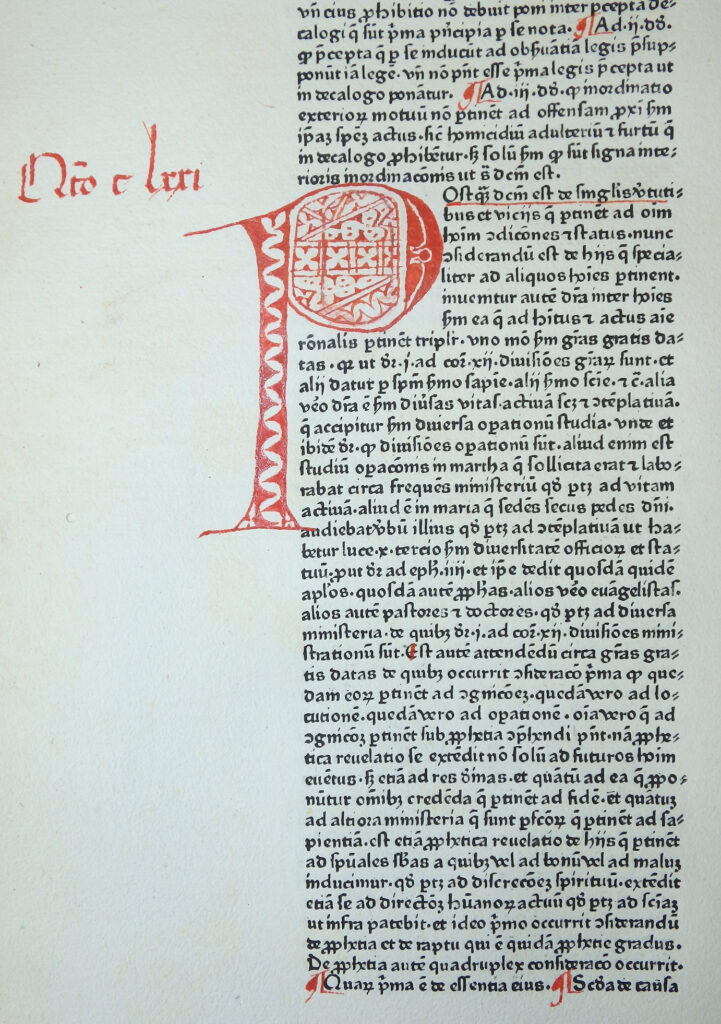 vñ eius ꝓhibitio nõ debuit poni inter pͨcepta de⸗
calogi q̃ sũt p̃ma pͥncipia p se nota. Ad·ij·dõ.
ꝙ p̃cepta q̃ p se inducũt ad obẜuãtiã legis p̃sup⸗
ponũt iã legẽ· vñ nõ pñt esse p̃ma legis p̃cepta ut
in decalogo ponãtur. Ad·iij·dõ· ꝙ inordinatio
exterioꝝ motuũ nõ ꝑtinet ad offensam ꝓxi ẜm
ip̃aꝫ spẽꝫ actus· sic̃ homicidiũ adulteriũ ⁊ furtũ q̃
in decalogo ꝓhibẽtur· sꝫ solũ ẜm ꝙ sũt signa inte⸗
rioris inordinacõnis ut s̃ dc̃m est.
Qtõ c lxxi
POstq̃ꝫ dc̃m est de singlis v̓tuti⸗
bus et vicijs q̃ ꝑtinẽt ad oĩm
hoĩm ↄdicõnes ⁊ status· nunc
ↄsiderandũ est de hijs q̃ specia⸗
liter ad aliquos hoĩes ꝑtinent.
inueniũtur autẽ dr̃a inter hoĩes
ẜm ea q̃ ad hĩtus ⁊ actus aĩe
rõnalis ꝑtinẽt triplr̃· vno mõ ẜm gr̃as gratis da⸗
tas· qꝛ ut dr̃·i·ad coꝝ̃·xij·diuisiões gr̃aꝝ sunt· et
alij datur ꝑ spm̃ ẜmo sapiẽ· alij ẜmo sciẽ· ⁊ c̃· alia
vẽo dr̃a ẽ ẜm diũsas vitas· actiuã scꝫ ⁊ ↄtẽplatiuã.
q̃ accipitur ẜm diuersa oꝑationũ studia· vnde et
ibidẽ dr̃· ꝙ diuisiões oꝑationũ sũt· aliud enim est
studiũ oꝑacõnis in martha q̃ sollicita erat ⁊ labo⸗
rabat circa frequẽs ministeriũ qđ ꝑtꝫ ad vitam
actiuã· aliud ẽ in maria q̃ sedẽs secus pedes dñi·
audiebat v̓bũ illius qđ ꝑtꝫ ad ↄtẽplatiuã ut ha⸗
betur luce·x·tercio ẜm diuersitatẽ officioꝝ et sta⸗
tuũ· ꝓut dr̃ ad eph̃·iiij·et ip̃e dedit quosdã quidẽ
apl̃os· quosdã autẽ ꝓp̃has· alios vẽo euãgelistas·
alios autẽ pastores ⁊ doctores· qđ ꝑtꝫ ad diuersa
ministeria· de quibꝫ dr̃·i·ad coꝝ̃·xij·diuisiões mini⸗
strationũ sũt· Est autẽ attendẽdũ circa gr̃as gra⸗
tis datas de quibꝫ occurrit ↄsideracõ p̃ma ꝙ que⸗
dam eoꝝ ꝑtinẽt ad ↄgnicõeꝫ· quedã vero ad lo⸗
cutionẽ· quedã vero ad oꝑationẽ· oĩa vero q̃ ad
ↄgnicõꝫ ꝑtinẽt sub ꝓphetia ↄp̃hendi pñt· nã ꝓphe⸗
tica reuelatio se extẽdit nõ solũ ad futuros hoĩm
euẽtus· sꝫ etiã ad res diĩnas· et quãtũ ad ea q̃ ꝓpo⸗
nũtur oĩnibꝫ credẽda q̃ ꝑtinẽt ad fidẽ· et quãtuꝫ
ad altiora ministeria q̃ sunt pfc̃oꝝ q̃ ꝑtinẽt ad sa⸗
pientiã· est etiã ꝓphetica reuelatio de hijs q̃ ꝑtinẽt
ad spũales sb̃as a quibꝫ vel ad bonũ vel ad maluꝫ
inducimur· qđ ꝑtꝫ ad discrecõeꝫ spirituũ· extẽdit
etiã se ad directõꝫ hũanoꝝ actuũ qđ ꝑtꝫ ad sciãꝫ
ut infra patebit· et ideo p̃mo occurrit ↄsiderandũ
de ꝓphetia et de raptu qui ẽ quidã ꝓphetie gradus.
De ꝓphetia autẽ quadruplex consideracõ occurrit·
Quaꝝ p̃ma ẽ de essentia eius. Scđa de causa